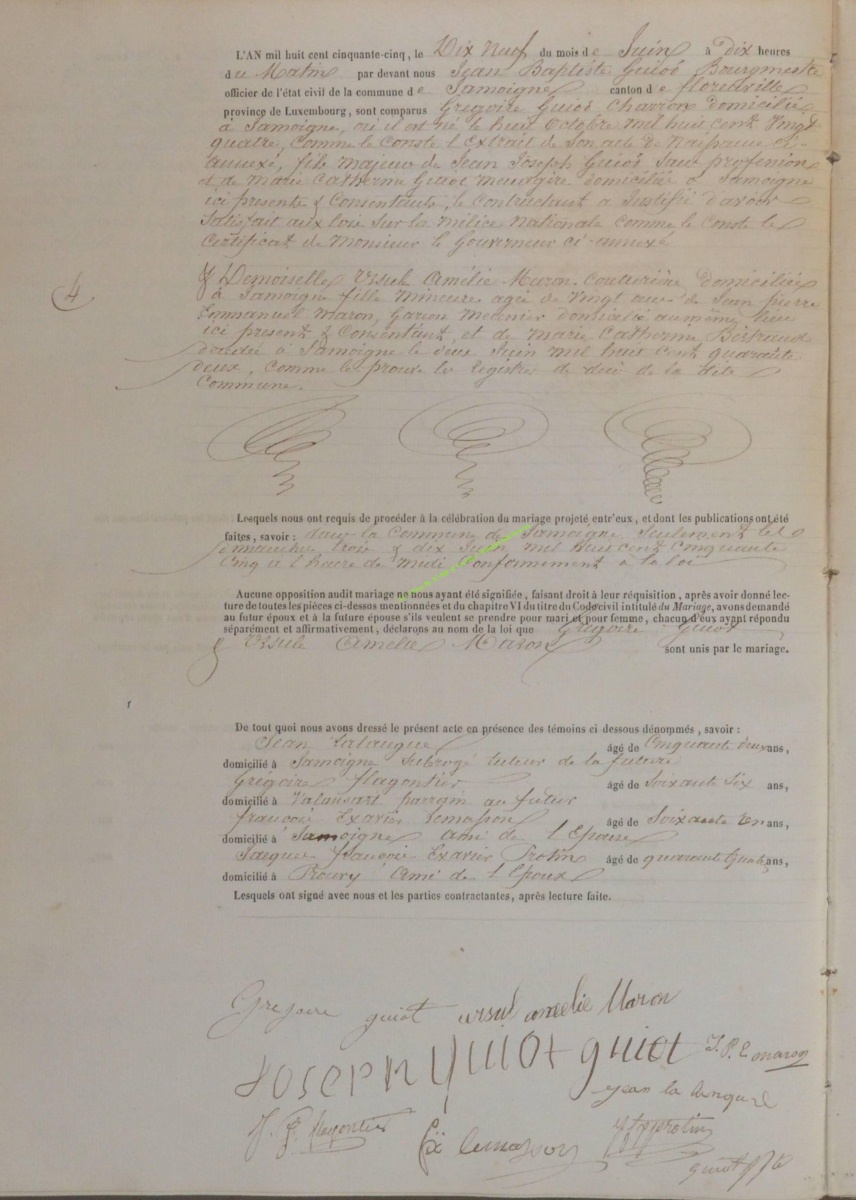 L'AN mil huit cent cinquante-cinq, le Dix Neuf du mois de Juin à Dix heures
du Matin par devant nous Jean Baptiste Guiot Bourgmestre
officier de l'état civil de la commune de Jamoigne canton de florenville
province de Luxembourg, sont comparus Grégoire Guiot Charron domicilié
à Jamoigne, où il est né le huit Octobre mil huit cent Vingt
quatre, comme le Conste l'Extrait de Son acte de Naissance ci-
annexé, fils majeur de Jean Joseph Guiot Sans profession
et de Marie Catherine Guiot menagère domiciliés à Jamoigne
ici présents & Consentants, le Contractant a Justifié d'avoir
Satisfait aux lois sur la Milice Nationale comme le Conste le
Certificat de Monsieur le Gouverneur ci-annexé
4
& Demoiselle Ursule Amélie Maron Couturière domiciliée
à Jamoigne fille mineure agée de Vingt ans de Jean pierre
Emmanuel Maron, Garçon Meunier domicilié au même lieu
ici présent & Consentant, et de Marie Catherine Bertrand
décédée à Jamoigne le deux Juin mil huit cent quarante
deux, comme le prouve les registres de de la dite
Commune.
Lesquels nous ont requis de procéder à la célébration du mariage projeté entr'eux, et dont les publications ont été
faites, savoir : dans la Commune de Jamoigne Seulement les
dimanches trois & dix Juin mil huit cent Cinquante
Cinq à l'heure de midi Conformément à la loi
Aucune opposition audit mariage ne nous ayant été signifiée, faisant droit à leur réquisition, après avoir donné lec-
ture de toutes les pièces ci-dessus mentionnées et du chapitre VI du titre du Code civil intitulé du Mariage, avons demandé
au futur époux et à la future épouse s'ils veulent se prendre pour mari et pour femme, chacun d'eux ayant répondu
séparément et affirmativement, déclarons au nom de la loi que Grégoire Guiot
& Ursule Amélie Maron sont unis par le mariage.
De tout quoi nous avons dressé le présent acte en présence des témoins ci dessous dénommés, savoir :
Jean Lalangue âgé de Cinquante deux ans,
domicilié à Jamoigne Subrogé tuteur de la future
Grégoire flagontier âgé de Soixante Six ans,
domicilié à Valansart parrain au futur
françois Exavier Lemasson âgé de Soixante un ans,
domicilié à Jamoigne ami de l'Epouse
Jacques françois Exavier Protin âgé de quarante ans,
domicilié à Prouvy Ami de l'Epoux
Lesquels ont signé avec nous et les parties contractantes, après lecture faite.
Gregoire guiot ursul amelie Maron
Joseph guiot guiot J. P. E maron
jean la langue
J. G. flagontier fx lemasson protin
guiot